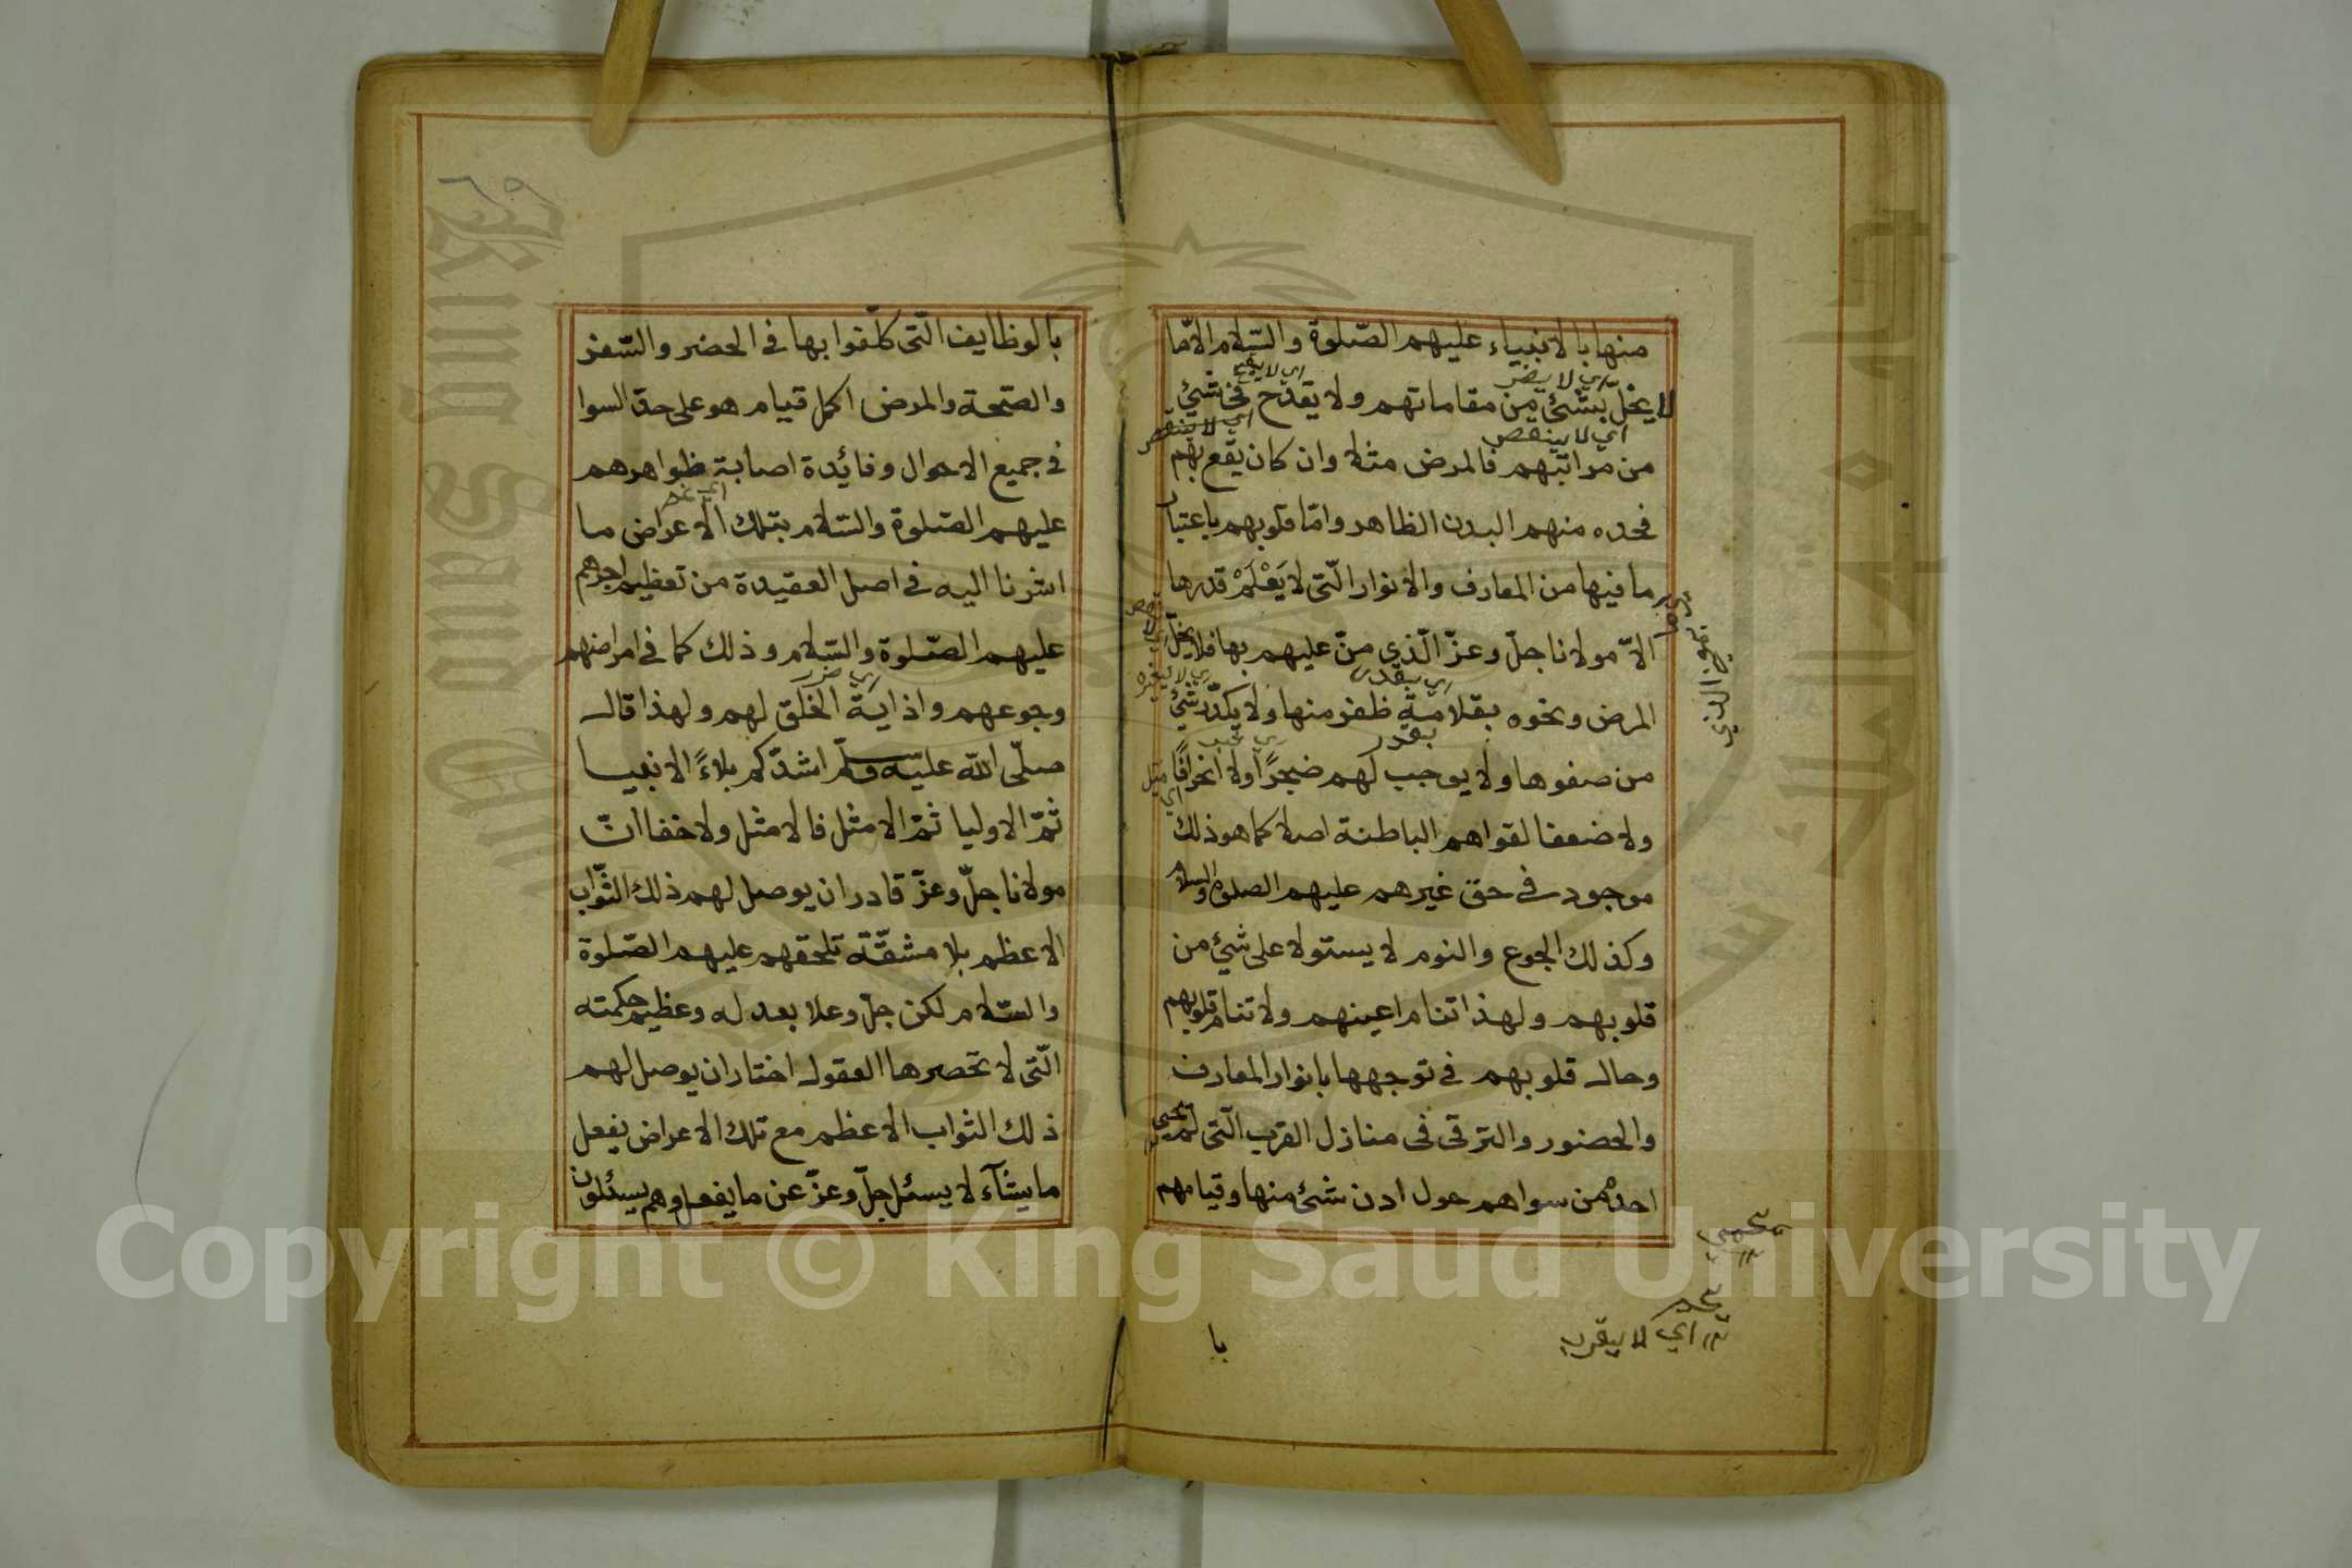 منها بالانبياء عليهم الصّلوة والسّلام الا مّا
اي لا يضر
لا يخلّ بشئ من مقاماتهم ولا يقدح في شئ
اي لا ينقص
من مراتبهم فالمرض مثلا وان كان يقع بهم
فحده منهم البدن الظاهر وامّا قلوبهم باعتبار
ما فيها من المعارف والانوار الّتى لا يَعْلَمْ قدرها
الاّ مولانا جلّ وعزّ الّذي منّ عليهم بها فلا يخلّ
المرض ونحوه بقلامة ظفر منها ولا يكدّر شئ
بقدر
من صفوها ولا يوجب لهم ضجرًا ولا انحرافًا
ولا ضعفا لقواهم الباطنة اصلا كما هو ذلك
موجود في حق غيرهم عليهم الصلوة والسلام
وكذلك الجوع والنوم لا يستولا على شئ من
قلوبهم ولهذا تنام اعينهم ولا تنام قلوبهم
وحال قلوبهم في توجهها بانوار المعارف
والحضور والترقى فى منازل القرب الّتى لم يحمى
احد من سواهم حول ادن شئ منها وقيامهم
اي لا يقرب
با
٦٥
بالوظايف الّتى كلّفوا بها في الحضر والسّفر
والصّحة والمرض اكمل قيام هو على حدّ السوا
في جميع الاحوال وفائدة اصابة ظواهرهم
عليهم الصّلوة والسّلام بتلك الاعراض ما
اشرنا اليه في اصل العقيدة من تعظيم اجرهم
عليهم الصّلوة والسّلام وذلك كما في امراضهم
اي ضرر
وجوعهم واذاية الخلق لهم ولهذا قال
صلّى الله عليه وسلّم اشدّكم بلاءً الانبيا
ثمّ الاوليا ثمّ الامثل فالامثل ولا خفا انّ
مولانا جلّ وعزّ قادر ان يوصل لهم ذلك الثّواب
الاعظم بلا مشقّة تلحقهم عليهم الصّلوة
والسّلام لكن جلّ وعلا بعدله وعظيم حكمته
الّتى لا تحصرها العقول اختار ان يوصل لهم
ذلك الثواب الاعظم مع تلك الاعراض يفعل
ما يشآء لا يسئل جلّ وعزّ عن ما يفعل وهم يسئلون
Copyright © King Saud University